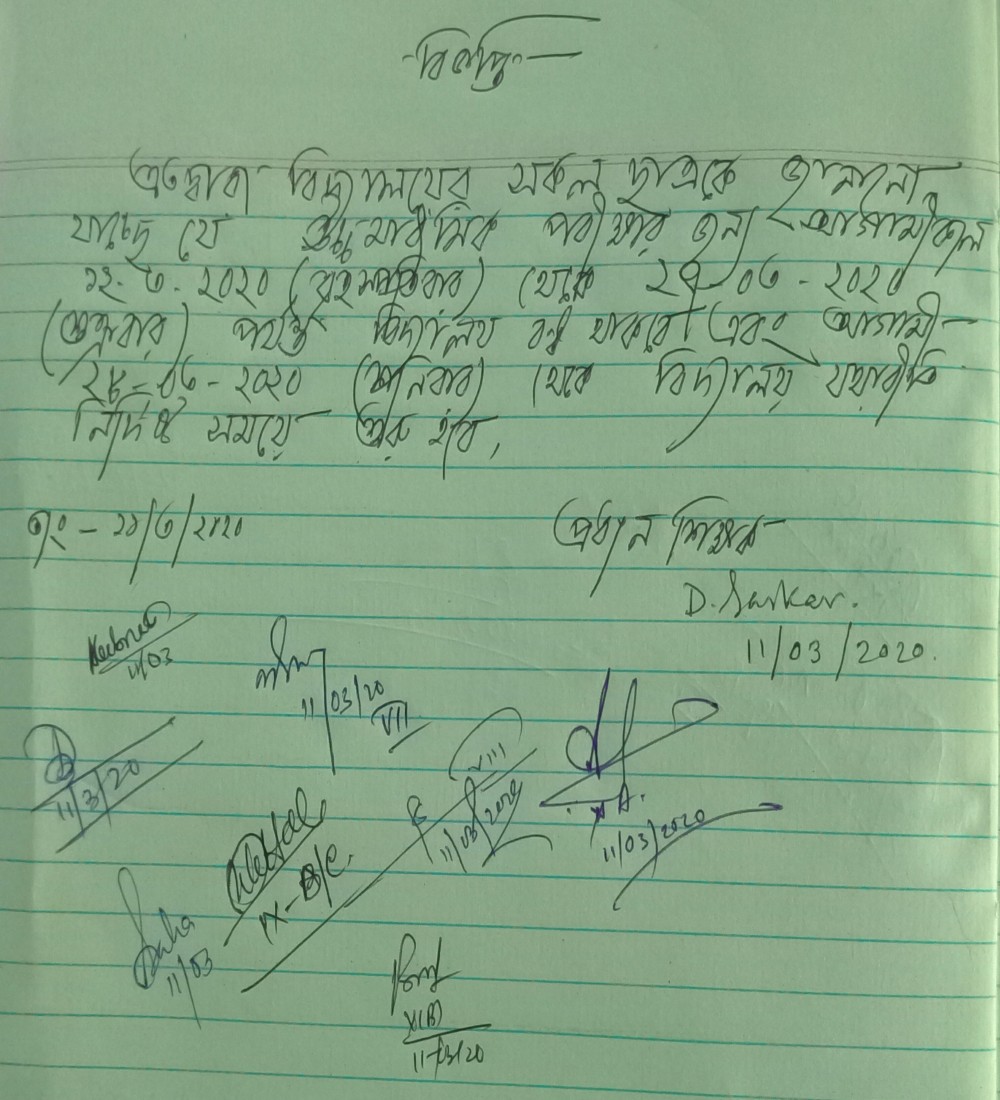 বিজ্ঞপ্তি
এতদ্বারা বিদ্যালয়ের সকল ছাত্রকে জানানো
যাচ্ছে যে উচ্চমাধ্যমিক পরীক্ষার জন্য আগামীকাল
১২.৩.২০২০ (বৃহস্পতিবার) থেকে ২৭-০৩-২০২০
(শুক্রবার) পর্যন্ত বিদ্যালয় বন্ধ থাকবে। এবং আগামী
২৮-০৩-২০২০ (শনিবার) থেকে বিদ্যালয় যথারীতি
নির্দিষ্ট সময়ে শুরু হবে,
তাং - ১১/৩/২০২০
প্রধান শিক্ষক
D. Sarkar.
11/03/2020.
11/03
11/03/20
VII
11/3/20
VIII
11/03/2020
X A.
11/03/2020
IX-B/C.
Saha
11/03
X(B)
11/03/20